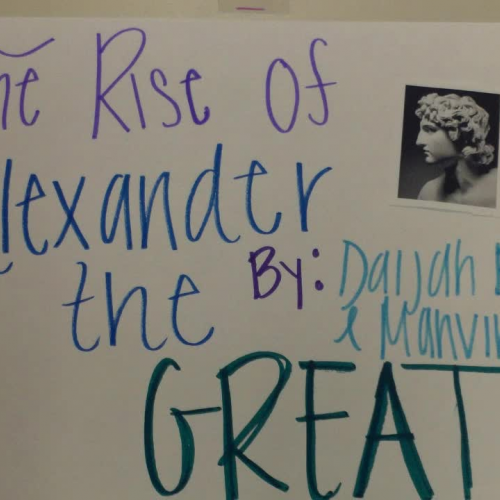 The Rise of
Alexander
the
By: Daijah
& Manvir
GREAT